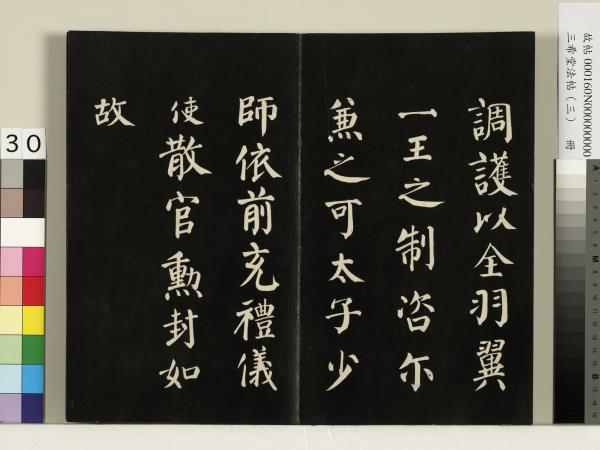 調護以全羽翼
一王之制咨尒
兼之可太子少
師依前充禮儀
使散官勳封如
故
故帖 000160N000000000
三希堂法帖（三） 冊
30